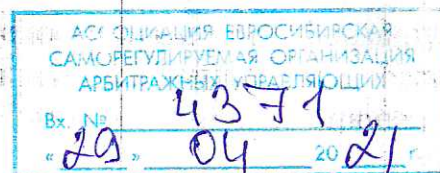 АССОЦИАЦИЯ ЕВРОСИБИРСКАЯ
САМОРЕГУЛИРУЕМАЯ ОРГАНИЗАЦИЯ
АРБИТРАЖНЫХ УПРАВЛЯЮЩИХ
Вх. № 4371
"29" 04 2021 г.